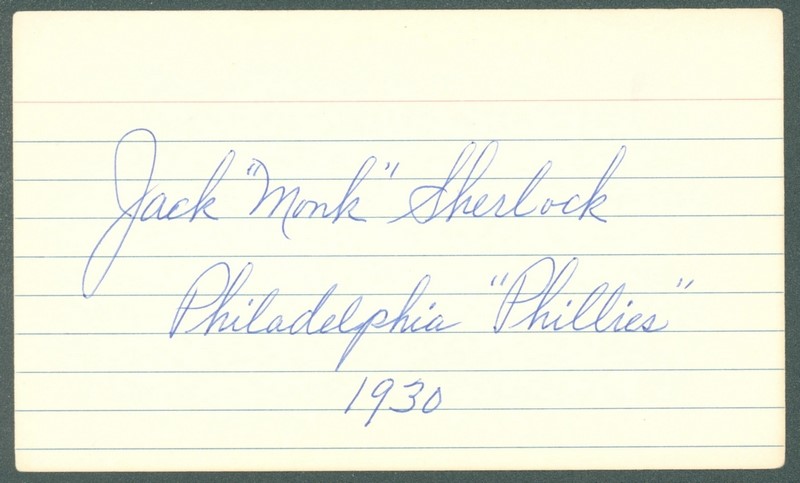 Jack "Monk" Sherlock
Philadelphia "Phillies"
1930